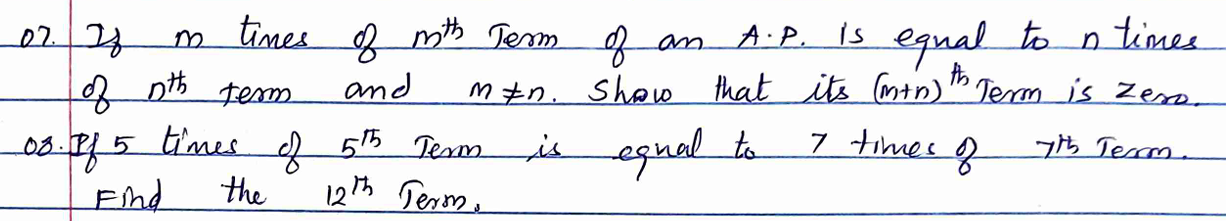 07. If m times of mth Term of an A.P. is equal to n times
of nth term and m ≠ n. Show that its (m+n)th Term is zero.
08. If 5 times of 5th Term is equal to 7 times of 7th Term.
Find the 12th Term.